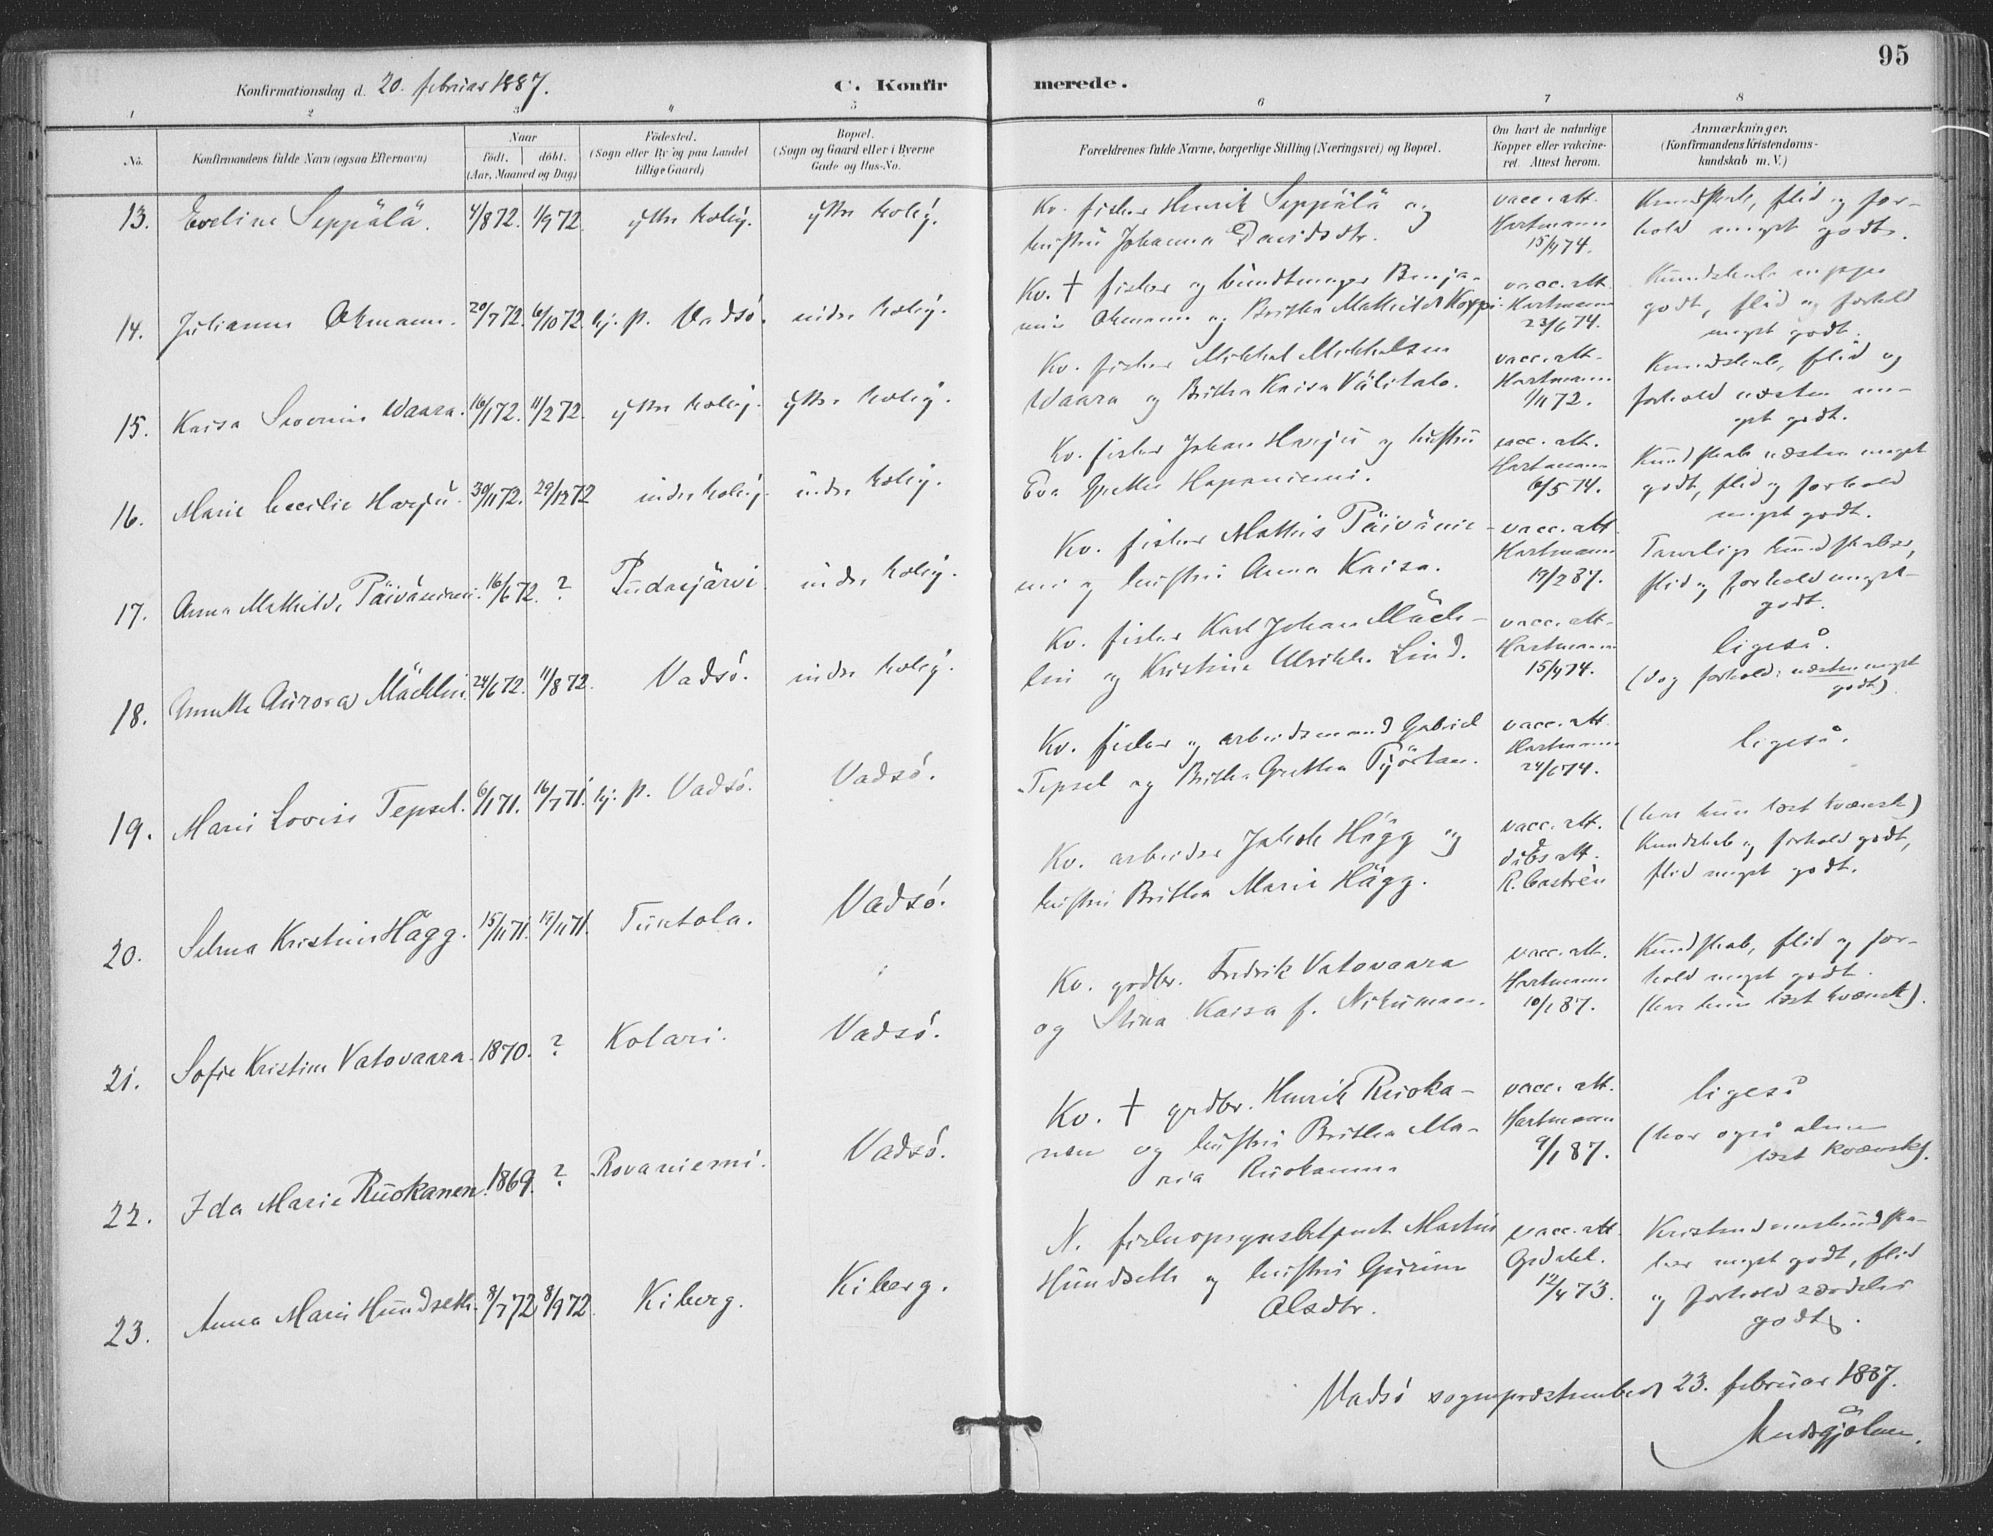 95
Konfirmationsdag d. 20. februar 1887.
C. Konfirmerede.
1 2 3 4 5 6 7 8
No.
Konfirmandens fulde Navn (ogsaa Efternavn)
Naar
födt. döbt.
(Aar, Maaned og Dag)
Födested.
(Sogn eller By og paa Landet
tillige Gaard)
Bopæl.
(Sogn og Gaard eller i Byerne
Gade og Hus-No.
Forældrenes fulde Navne, borgerlige Stilling (Næringsvei) og Bopæl.
Om havt de naturlige
Kopper eller vakcine-
ret. Attest herom.
Anmærkninger.
(Konfirmandens Kristendoms-
kundskab m. V.)
13. Eveline Seppälä. 4/8 72. 1/9 72.
Kv. fisker Henrik Seppälä og
hustru Johanna Davidsdtr.
vacc. att.
Hartmann
Kundskab, flid og for-
hold meget godt.
14. Julianne Okmann. 20/7 72. 6/10 72. kj. p. Vadsö.
Kv. † fisker og bundtmager Benja-
min Okmann og Britha Mathilde Koppi.
vacc. att.
Hartmann
23/6 74.
godt, flid og forhold
meget godt.
15. Kaisa Severine Waara. 16/1 72. 11/2 72.
Kv. fisker Mikkel Mikkelsen
Waara og Britha Kaisa Välitalo.
vacc. att.
Hartmann
1/11 72.
Kundskab, flid og
forhold næsten me-
get godt.
16. Marie Cecilie Harju. 30/11 72. 29/12 72
Kv. fisker Johan Harju og hustru
Eva Grethe Hapaniemi.
vacc. att.
Hartmann
6/5 74.
Kundskab næsten meget
godt, flid og forhold
meget godt.
17. Anna Mathilde Päiväniemi. 16/6 72. ? Pudasjärvi
Kv. fisker Mathis Päivänie-
mi og hustru Anna Kaisa.
vacc. att
Hartmann
19/2 87.
Tarvelige kundskaber,
flid og forhold meget
godt.
18. Annette Aurora Mäcklin. 24/6 72. 11/8 72. Vadsö.
Kv. fisker Karl Johan Mäck-
lin og Kristine Ulrikke Lind.
vacc. att.
Hartmann
15/4 74.
ligeså.
(dog forhold: næsten meget
godt).
19. Marie Lovise Tepsel. 6/1 71. 16/7 71. kj. p. Vadsö. Vadsö.
Kv. fisker og arbeidsmand Gabriel
Tepsel og Britha Grethe Pyörtan.
vacc. att
Hartmann
24/6 74.
ligeså.
20. Selma Kristine Hägg. 15/11 71. 19/11 71. Tuntola. Vadsö.
Kv. arbeider Jakob Hägg og
hustru Britha Marie Hägg.
vacc. att.
dåbsatt.
R. Castrén
(har kun læst kvænsk)
Kundskab og forhold godt,
flid meget godt.
21. Sofie Kristine Vatovaara. 1870. ? Kolari. Vadsö.
Kv. grdbr. Fredrik Vatovaara
og Stina Kaisa f. Nikumaa.
vacc. att.
Hartmann
10/1 87.
Kundskab, flid og for-
hold meget godt.
(har kun læst kvænsk).
22. Ida Marie Ruokanen. 1869. ? Rovaniemi. Vadsö.
Kv. † grdbr. Henrik Ruoka-
nen og hustru Britha Ma-
ria Ruokanen
vacc. att.
Hartmann
9/1 87.
ligeså
(har også alene
læst kvænsk).
23. Anna Marie Hundseth. 8/7 72 8/9 72. Kiberg. Kiberg.
N. fiskeropsynsbetjent Martin
Hundseth og hustru Gurine
Olsdtr.
vacc. att
12/4 73.
Kristendomskundska-
ber meget godt, flid
og forhold særdeles
godt.
Vadsö sognepræstembed 23. februar 1887.